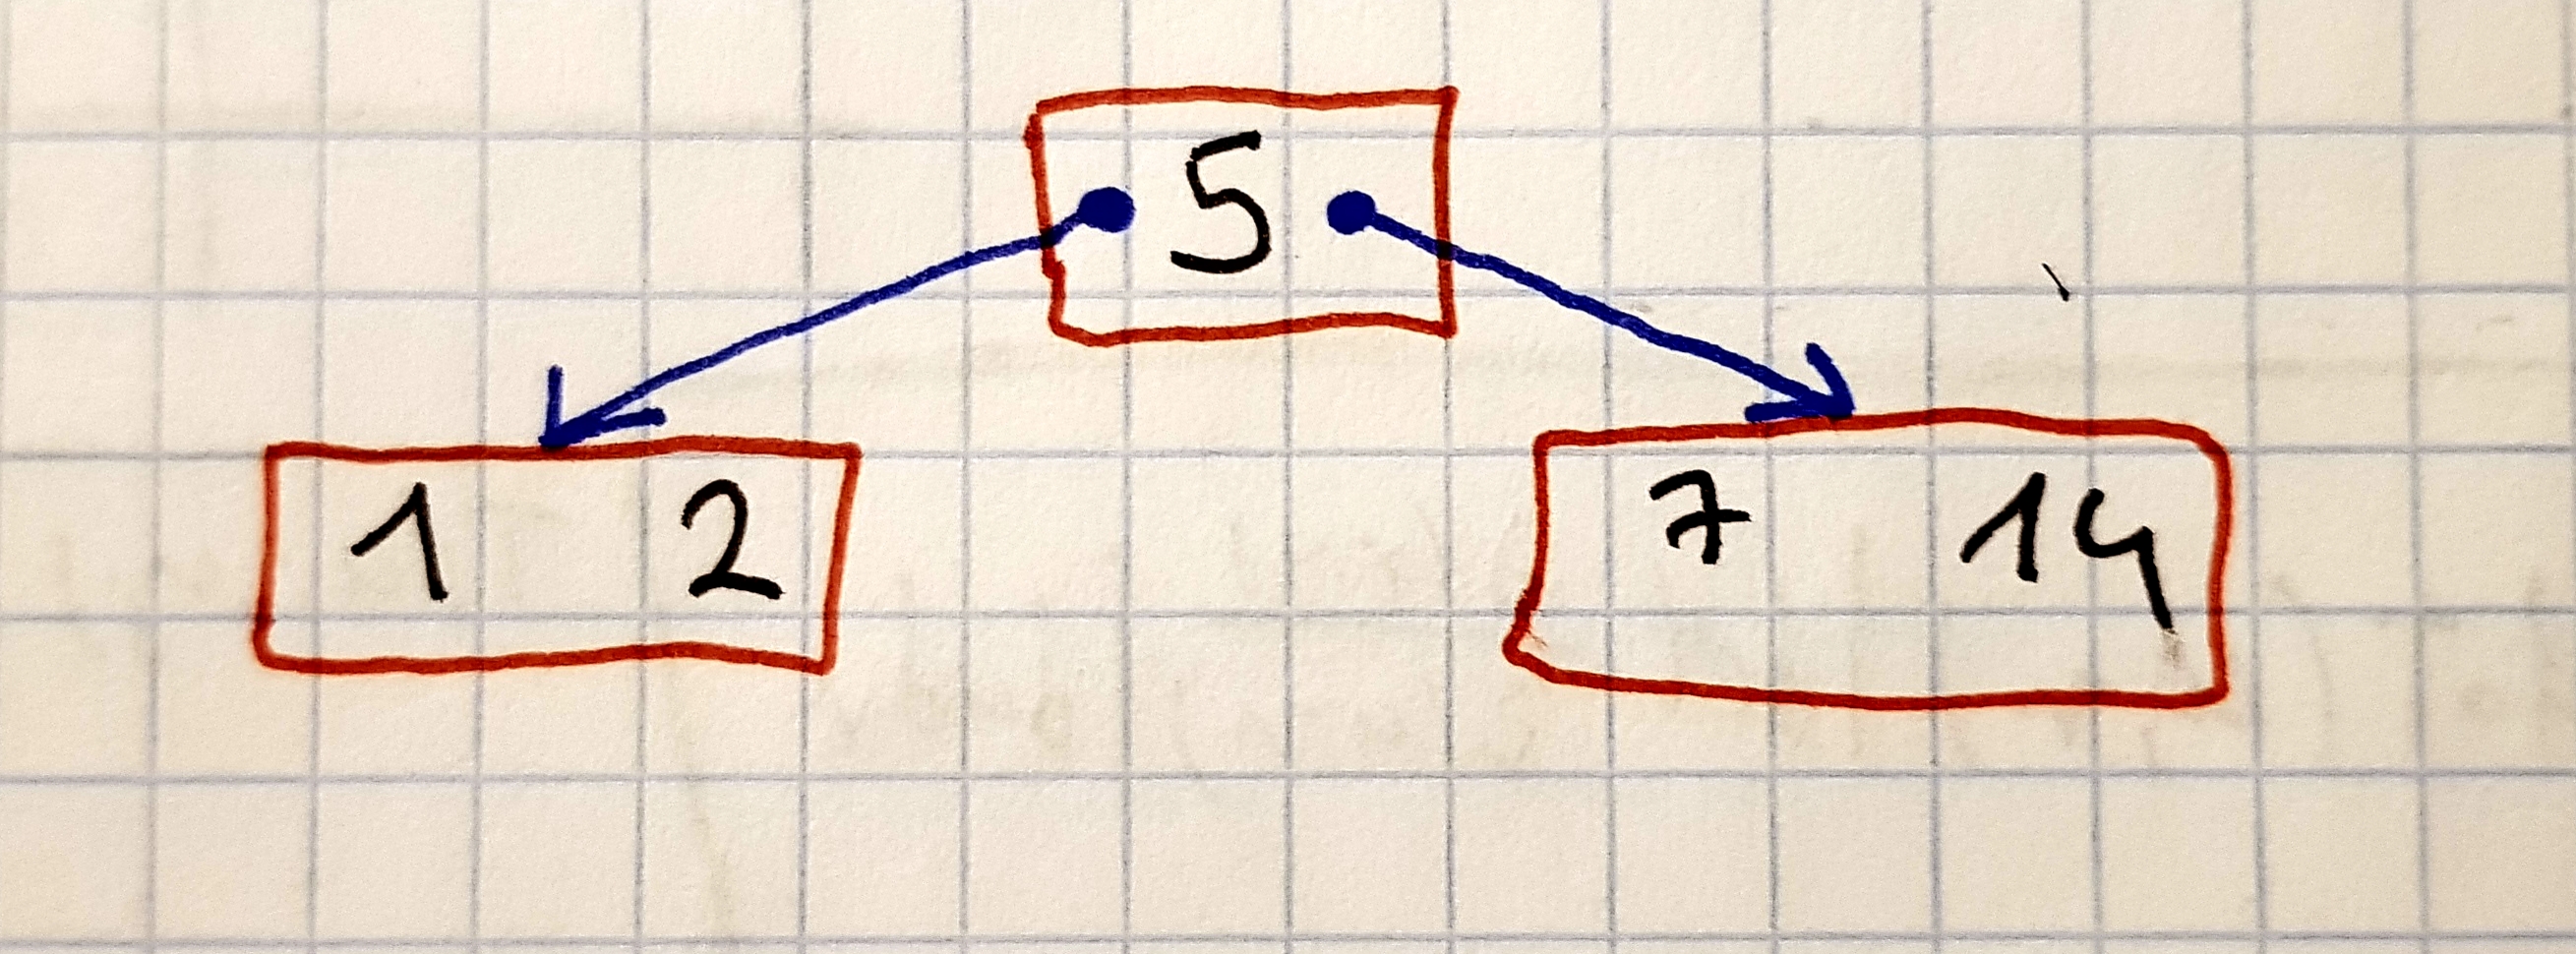 5
1 2
7 14